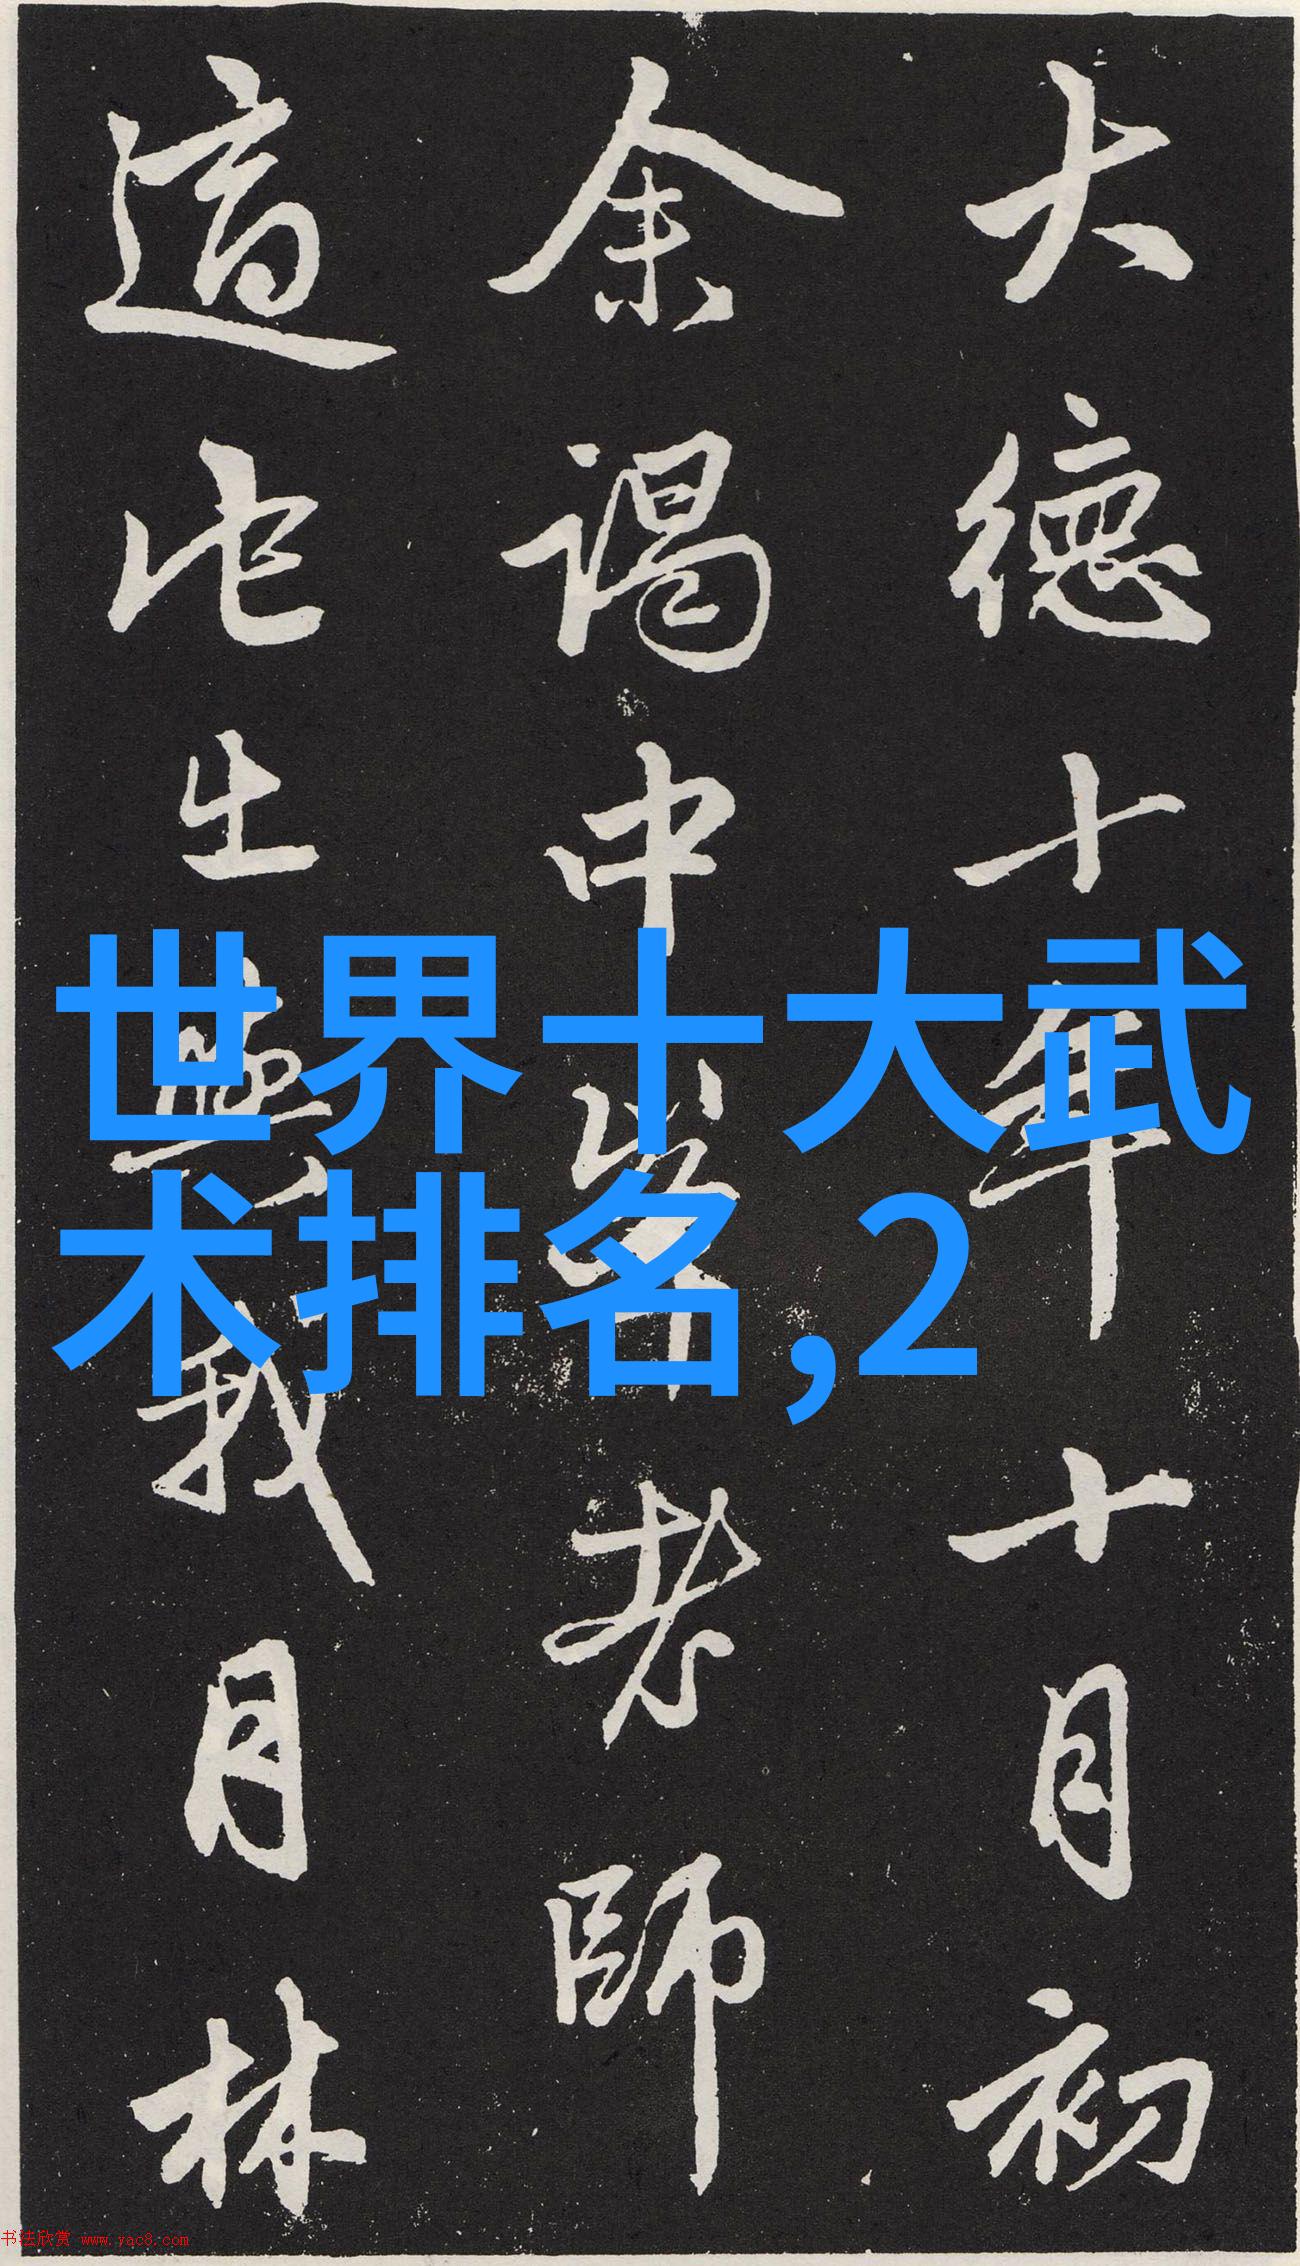 大德十年十月初
余謁中峯老師
道此出無我月林
世界十大武
术排名,2
书法欣赏 www.yac8.com